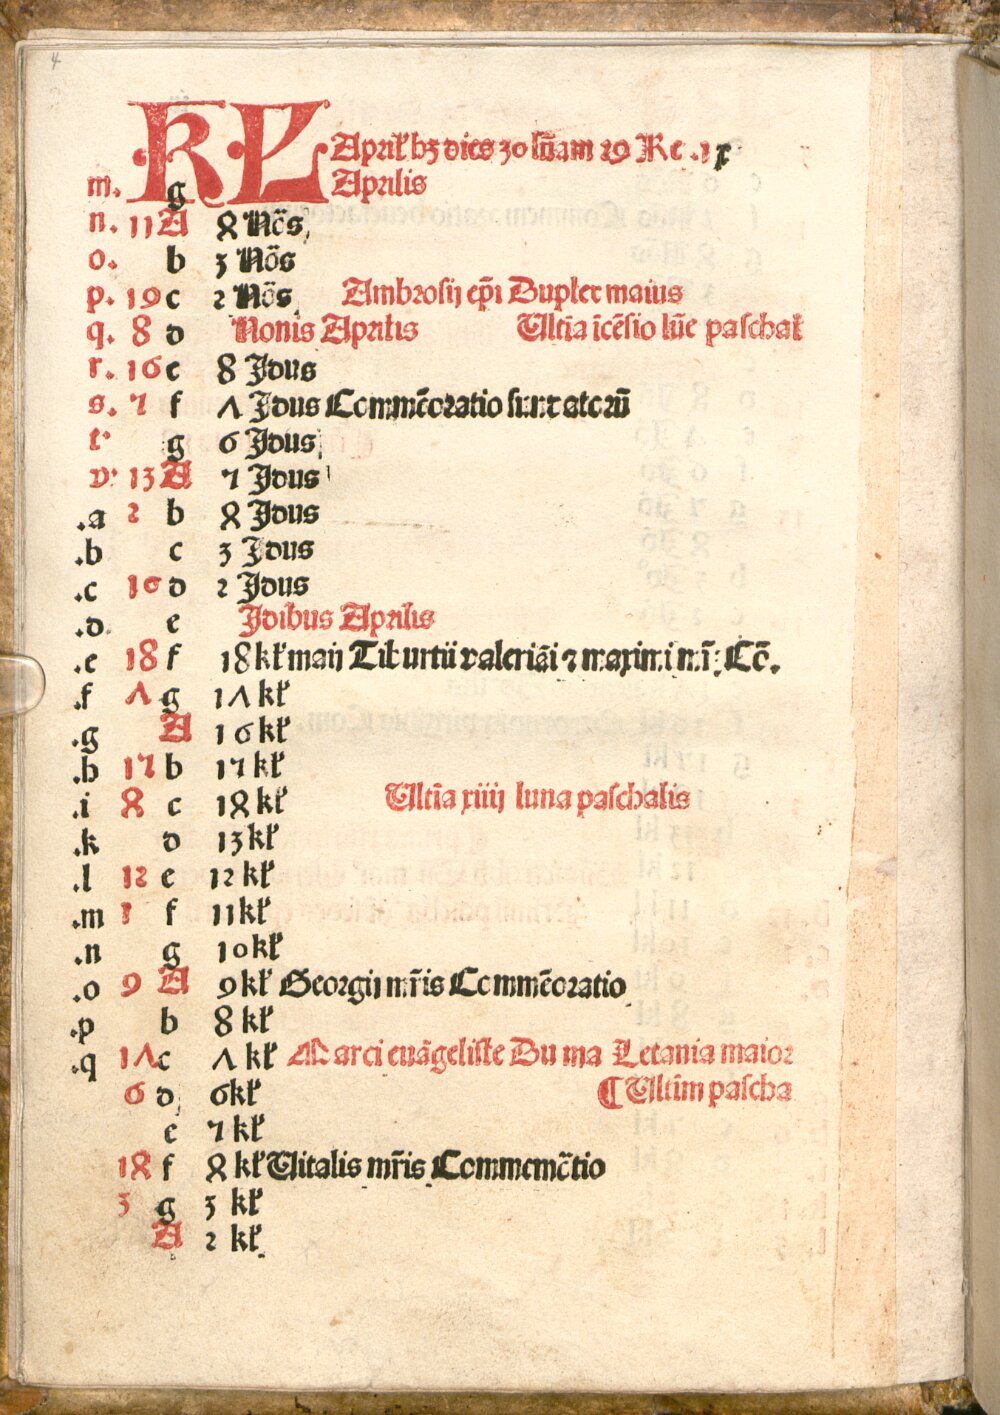 4
KL Aprił hʒ dies 30 lūam 29 Re .1x
m. g Aprilis
n. 11 A 8 Nōs
o. b 3 Nōs
p. 19 c 2 Nōs Ambrosij epī Duplex maius
q. 8 d Nonis Aprilis Ultīa īcēsio lūe paschał
r. 16 e 8 Idus
s. 7 f Λ Idus Commēoratio
t. g 6 Idus
v. 13 A 7 Idus
.a 2 b 8 Idus
.b c 3 Idus
.c 10 d 2 Idus
.d e Idibus Aprilis
.e 18 f 18 kł maij Tiburtii valeriāi ⁊ maximi mr̄: Cō.
.f Λ g 1Λ kł
.g A 16 kł
.h 17 b 17 kł
.i 8 c 18 kł Ultīa xiiij luna paschalis
.k d 13 kł
.l 12 e 12 kł
.m 1 f 11 kł
.n g 10 kł
.o 9 A 9 kł Georgij mr̄is Commēoratio
.p b 8 kł
.q 1Λ c Λ kł Marci euāgeliste Du ma Letania maior
6 d 6 kł ¶ Ultīm pascha
e 7 kł
18 f 8 kł Uitalis mr̄is Commemōtio
3 g 3 kł
A 2 kł